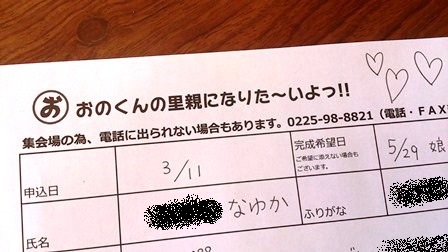 お おのくんの里親になりた〜いよっ!!
集会場の為、電話に出られない場合もあります。0225-98-8821(電話・FAX
申込日 3/11 完成希望日 5/29 娘
ご希望に添えない場合も
ございます。
氏名 なゆか ふりがな